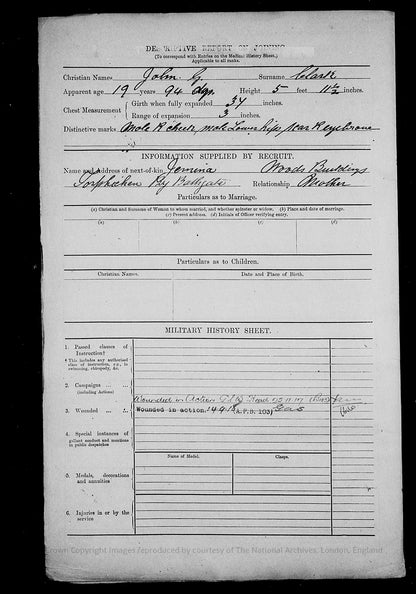 DESCRIPTIVE REPORT ON JOINING
(To correspond with Entries on the Medical History Sheet.)
Applicable to all ranks.
Christian Name John G. Surname Clark
Apparent age 19 years 94 dys. Height 5 feet 11½ inches.
Chest Measurement { Girth when fully expanded 34 inches.
Range of expansion 3 inches.
Distinctive marks Mole R cheek, mole Lower lip, scar R eyebrow
INFORMATION SUPPLIED BY RECRUIT.
Name and Address of next-of-kin Jemima Woods Buildings
Torphichen By Bathgate Relationship Mother
Particulars as to Marriage.
(a) Christian and Surname of Woman to whom married, and whether spinster or widow. (b) Place and date of marriage.
(c) Present address. (d) Initials of Officer verifying entry.
Particulars as to Children.
Christian Names. Date and Place of Birth.
MILITARY HISTORY SHEET.
1. Passed classes of Instruction?
* This includes any authorised class of instruction, e.g., in swimming, chiropody, &c.
2. Campaigns
(including Actions)
Wounded in Action
3. Wounded Wounded in action. 14.9.18 A.F.B. 103/ Gas
4. Special instances of gallant conduct and mentions in public despatches
Name of Medal. Clasps.
5. Medals, decorations and annuities
6. Injuries in or by the service
Crown Copyright Images reproduced by courtesy of The National Archives, London, England